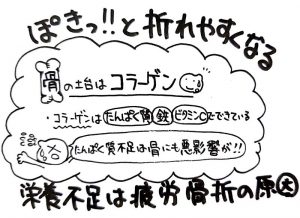 ぽきっ!!と折れやすくなる
骨の土台はコラーゲン
・コラーゲンはたんぱく質 鉄 ビタミンCでできている
たんぱく質不足は骨にも悪影響が!!
栄養不足は疲労骨折の原因